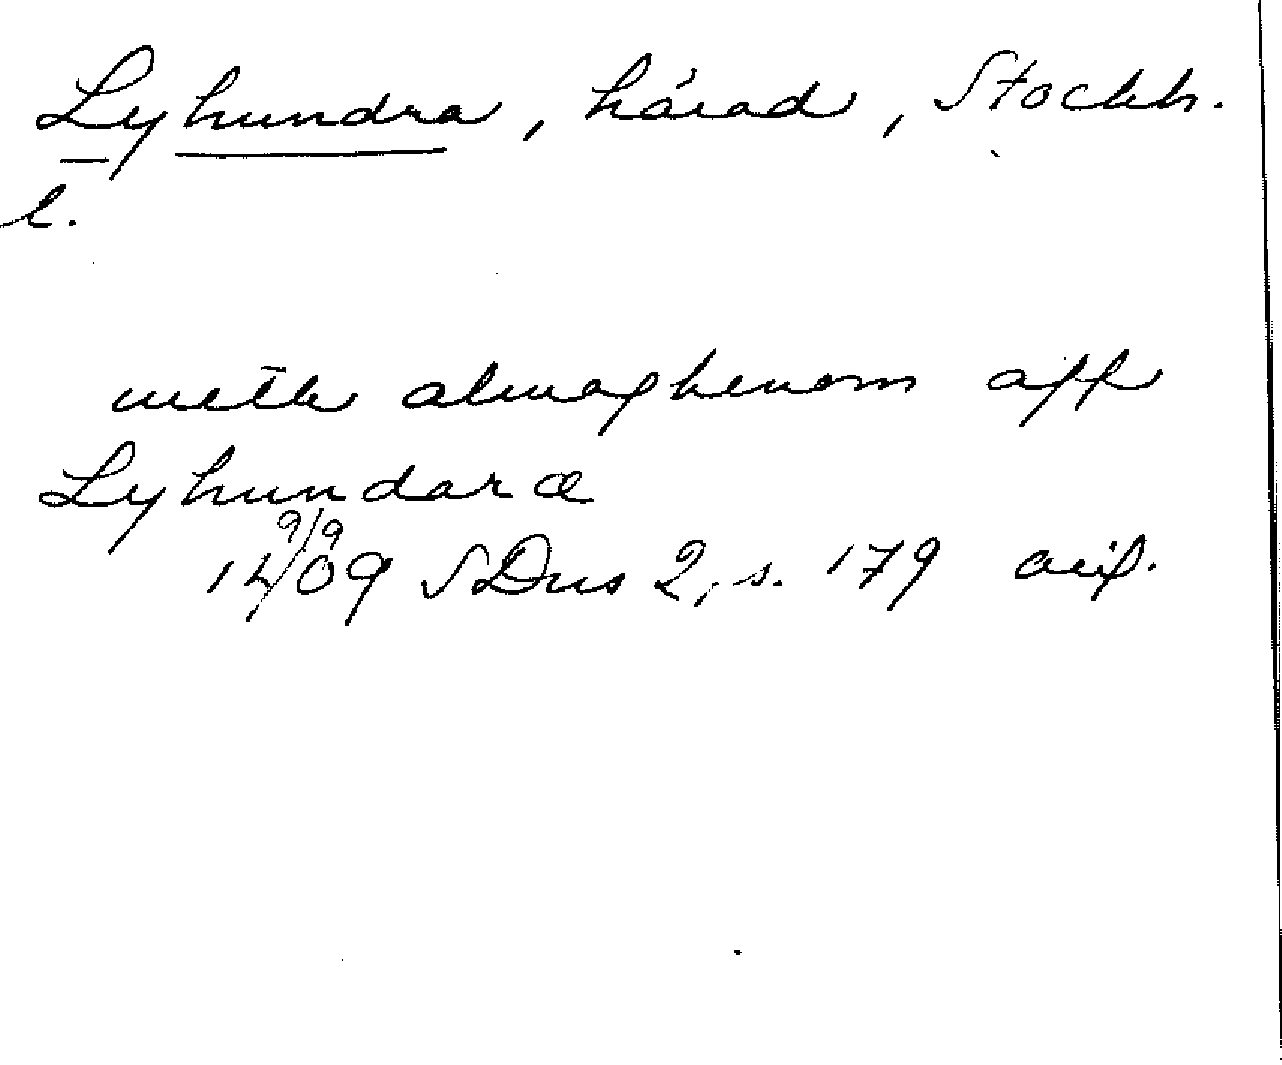 Lyhundra, härad, Stockh.
l.
meth almoghenom aff
Lyhundaræ
9/9
1409 SDns 2, s. 179 avig.